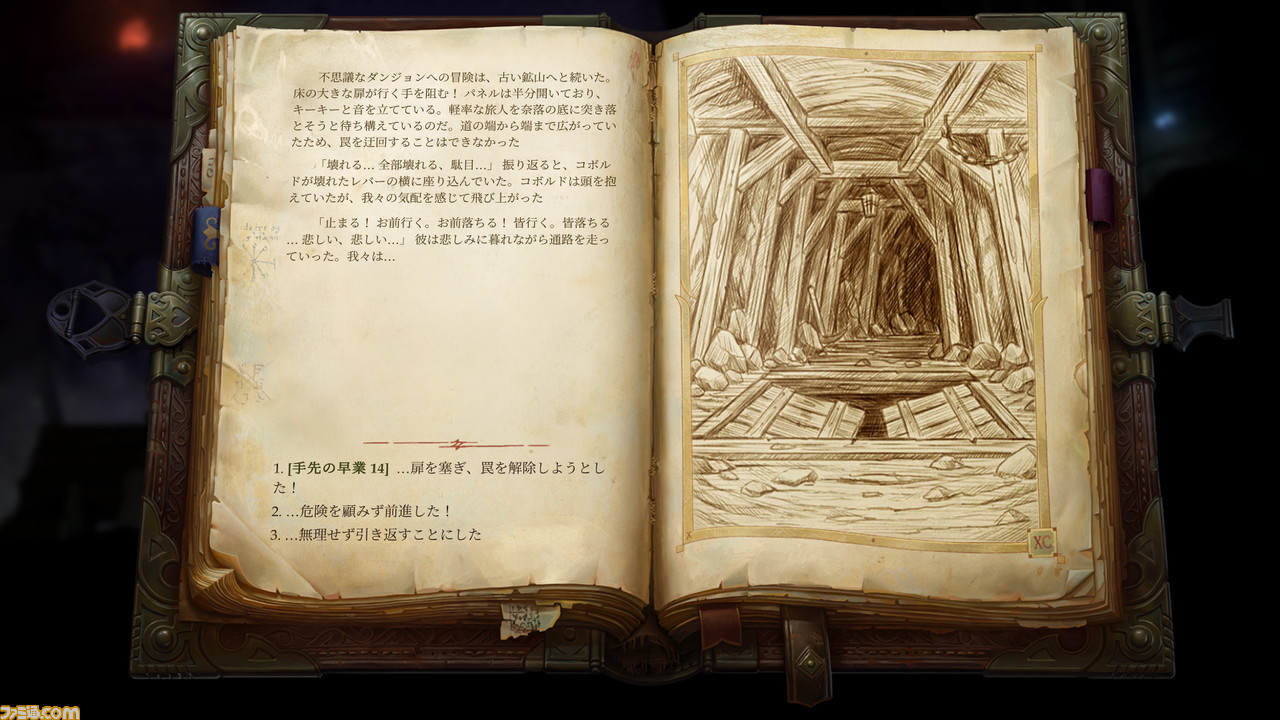 不思議なダンジョンへの冒険は、古い鉱山へと続いた。
床の大きな扉が行く手を阻む！ パネルは半分開いており、
キーキーと音を立てている。軽率な旅人を奈落の底に突き落
とそうと待ち構えているのだ。道の端から端まで広がってい
たため、罠を迂回することはできなかった
「壊れる… 全部壊れる、駄目…」 振り返ると、コボル
ドが壊れたレバーの横に座り込んでいた。コボルドは頭を抱
えていたが、我々の気配を感じて飛び上がった
「止まる！ お前行く。お前落ちる！ 皆行く。皆落ちる
… 悲しい、悲しい…」 彼は悲しみに暮れながら通路を走っ
ていった。我々は…
1. [手先の早業 14] …扉を塞ぎ、罠を解除しようとし
た！
2. …危険を顧みず前進した！
3. …無理せず引き返すことにした
XC
ファミ通.com